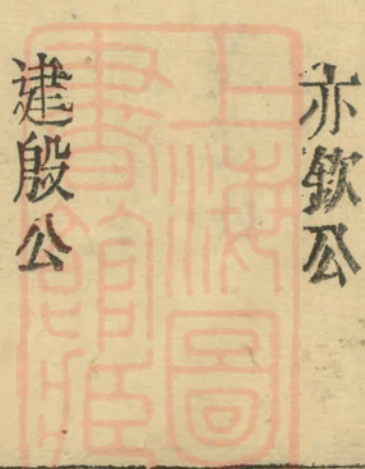 亦欽公
建殷公
上海圖
書館藏